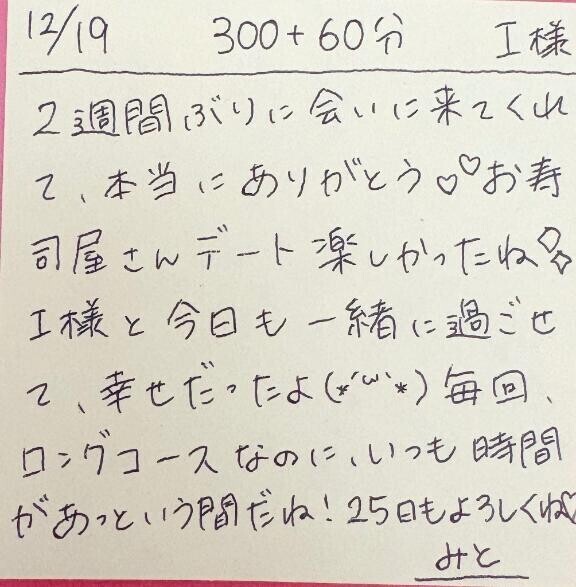 12/19 300+60分 I様
2週間ぶりに会いに来てくれ
て、本当にありがとう♡♡お寿
司屋さんデート楽しかったね✧✧
I様と今日も一緒に過ごせ
て、幸せだったよ(*´ω`*)毎回、
ロングコースなのに、いつも時間
があっという間だね!25日もよろしくね♡
みと